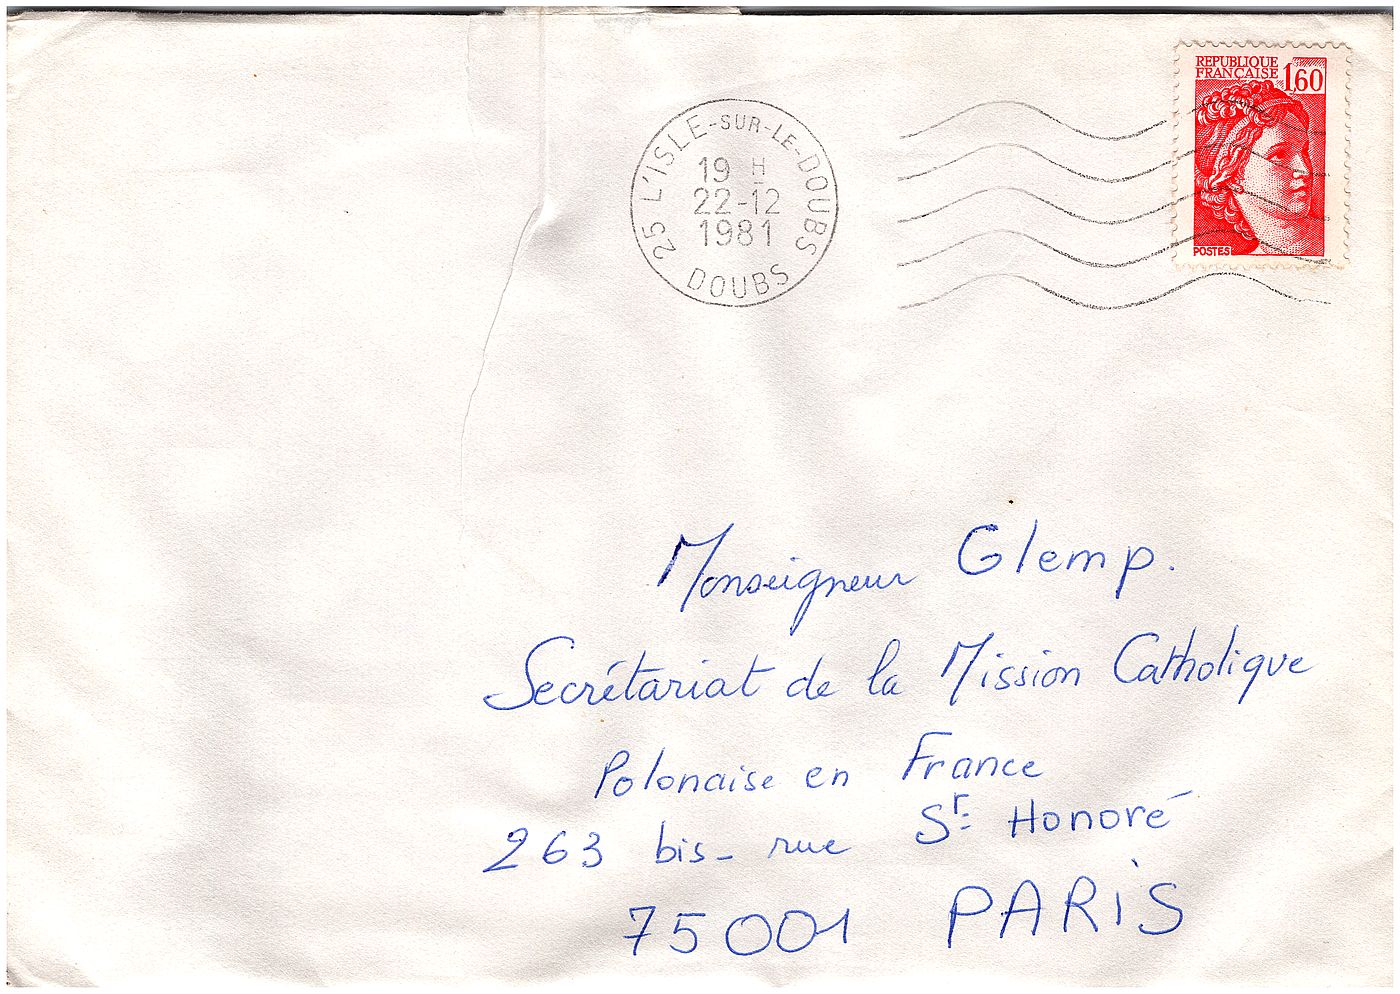 REPUBLIQUE
FRANÇAISE 1,60
POSTES
25 L'ISLE-SUR-LE-DOUBS
19 H
22-12
1981
DOUBS
Monseigneur Glemp.
Secrétariat de la Mission Catholique
Polonaise en France
263 bis- rue Sr Honoré
75001 PARIS